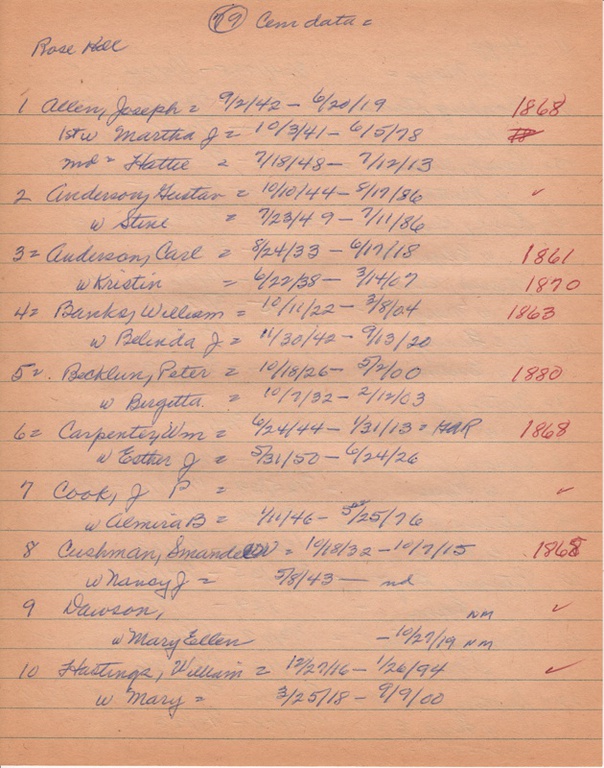 79 Cem data =
Rose Hill
1 Allen, Joseph = 9/2/42 - 6/20/19 1868
1st w Martha J = 10/3/41 - 6/5/78
md = Hattie = 7/18/48 - 7/12/13
2 Anderson, Gustav = 10/10/44 - 8/17/86 ✓
w Stine = 7/23/49 - 7/11/86
3 = Anderson, Carl = 8/24/33 - 6/17/18 1861
w Kristin = 6/22/38 - 3/14/07 1870
4 = Banks, William = 10/11/22 - 3/8/04 1863
w Belinda J = 11/30/42 - 9/13/20
5 = Becklun, Peter = 10/18/26 - 5/2/00 1880
w Bergetta = 10/7/32 - 2/12/03
6 = Carpenter, Wm = 6/24/44 - 1/31/13 = 1868
w Esther J = 5/31/50 - 6/24/26
7 Cook, J P = ✓
w Almira B = 1/11/46 - 25/76
8 Cushman, = 10/18/32 - 10/7/15 1868
w Nancy J = 5/8/43 - nd
9 Dawson, NM ✓
w Mary Ellen - 10/27/19 NM
10 Hastings, William = 12/27/16 - 1/26/94 ✓
w Mary = 3/25/18 - 9/9/00